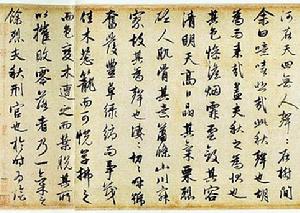 河在天四無人聲〻在樹間
余曰噫嘻悲哉此秋聲也胡
為而來哉蓋夫秋之為狀也
其色慘淡煙霏雲斂其容
清明天高日晶其氣慄冽
砭人肌骨其意蕭條山川寂
寥故其為聲也淒〻切〻呼號
奮發豐草綠縟而爭茂
佳木蔥蘢而可悅草拂之
而色變木遭之而葉脫其所
以摧敗零落者乃一氣之
餘烈夫秋刑官也於時為陰